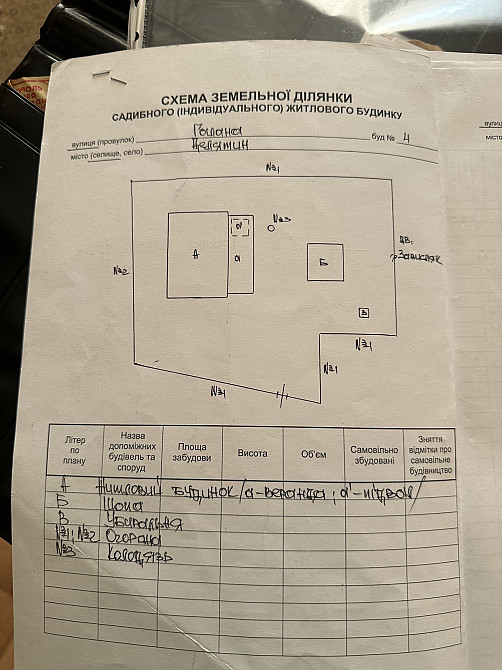 СХЕМА ЗЕМЕЛЬНОЇ ДІЛЯНКИ
САДИБНОГО (ІНДИВІДУАЛЬНОГО) ЖИТЛОВОГО БУДИНКУ
вулиця (провулок) буд № 4
місто (селище, село) Делятин
№1
№2
А
а'
а
№3
Б
В
№1
№1
№1
Літер по плану
Назва допоміжних будівель та споруд
Площа забудови
Висота
Об'єм
Самовільно збудовані
Зняття відмітки про самовільне будівництво
А Житловий будинок /а-веранда; а'-підвал/
Б Шопа
В Убиральня
№1; №2 Огорожа
№3 Колодязь